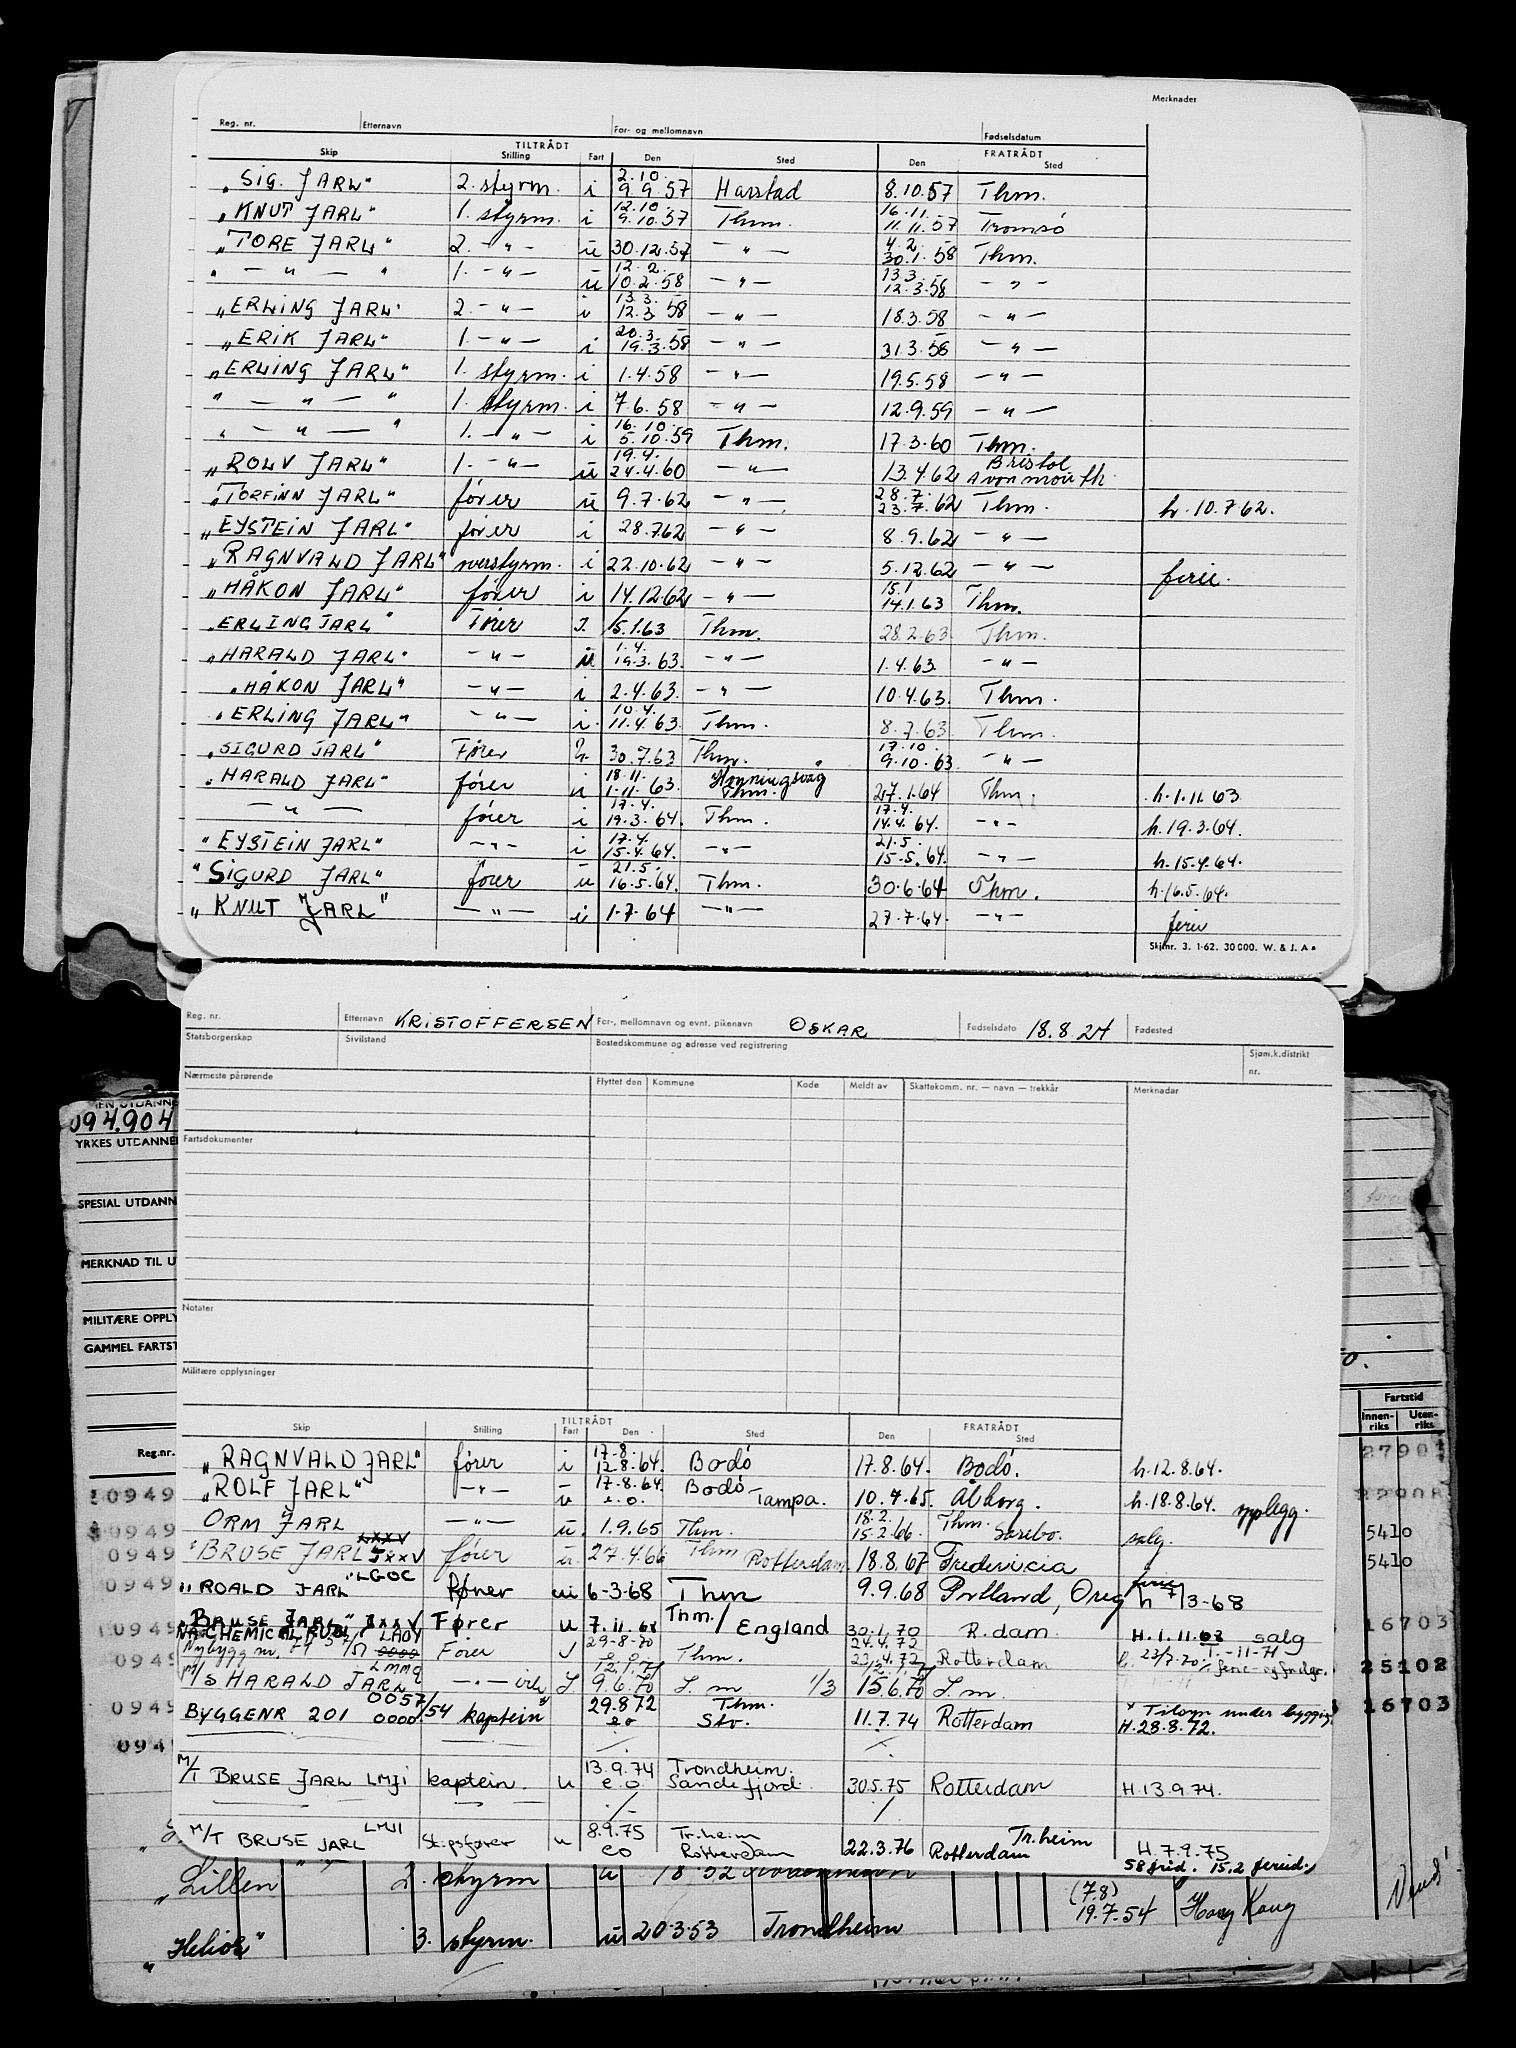 Merknader
Reg. nr. Etternavn For- og mellomnavn Fødselsdatum
TILTRÅDT FRATRÅDT
Skip Stilling Fart Den Sted Den Sted
"SIG. JARL" 2. styrm. i 2.10. 9.9.57 Harstad 8.10.57 Thm.
"KNUT JARL" 1. styrm. i 12.10. 9.10.57 Thm. 16.11. 11.11.57 Tromsö
"TORE JARL" 2. -"- u 30.12.57 -"- 4.2. 30.1.58 Thm.
" - " - " 1. -"- u 12.2. 10.2.58 -"- 13.3. 12.3.58 -"-
"ERLING JARL" 2. -"- i 13.3. 12.3.58 -"- 18.3.58 -"-
"ERIK JARL" 1. -"- i 20.3. 19.3.58 -"- 31.3.58 -"-
"ERLING JARL" 1. styrm. i 1.4.58 -"- 19.5.58 -"-
" - " - " 1. styrm. i 7.6.58 -"- 12.9.59 -"-
" - " - " 1. -"- i 16.10. 5.10.59 Thm. 17.3.60 Thm.
"ROLV JARL" 1. -"- u 19.4. 24.4.60 -"- 13.4.62 Bristol Avonmouth
"TORFINN JARL" fører u 9.7.62 -"- 28.7. 23.7.62 Thm. h. 10.7.62.
"EYSTEIN JARL" fører i 28.7.62 -"- 8.9.62 -"-
"RAGNVALD JARL" overstyrm. i 22.10.62 -"- 5.12.62 -"- ferie.
"HÅKON JARL" fører i 14.12.62 -"- 15.1 14.1.63 Thm.
"ERLING JARL" Fører I. 15.1.63 Thm. 28.2.63 Thm.
"HARALD JARL" -"- u 1.4. 19.3.63. -"- 1.4.63. -"-
"HÅKON JARL" -"- i 2.4.63. -"- 10.4.63. Thm.
"ERLING JARL" -"- i 10.4. 11.4.63. Thm. 8.7.63 Thm.
"SIGURD JARL" Fører 30.7.63 Thm. 17.10. 9.10.63 -"-
"HARALD JARL" fører i 18.11. 1.11.63 Honningsvåg Thm. 27.1.64 Thm. h.1.11.63
-"- fører i 17.4. 19.3.64. Thm. 17.4. 14.4.64. -"- h.19.3.64.
"EYSTEIN JARL" -"- i 17.4. 15.4.64. -"- 21.5. 15.5.64. -"- h.15.4.64.
"SIGURD JARL" fører u 21.5. 16.5.64. Thm. 30.6.64 Thm. h.16.5.64.
"KNUT JARL" -"- i 1.7.64 -"- 27.7.64. -"- ferie
Skj. nr. 3. 1-62. 30 000. W. & J. A.
Reg. nr. Etternavn KRISTOFFERSEN For-, mellomnavn og evnt. pikenavn OSKAR Fødselsdato 18.8.24 Fødested
Statsborgerskap Sivilstand Bostedskommune og adresse ved registrering Sjøm.k.distrikt nr.
Nærmeste pårørende Flyttet den Kommune Kode Meldt av Skattekomm. nr. — navn — trekkår Merknader
094.904
YRKES UTDANNE
Fartsdokumenter
SPESIAL UTDANN
MERKNAD TIL U
Notater
MILITÆRE OPPLY
GAMMEL FARTST
Militære opplysninger
Fartstid
Innenriks Utenriks
TILTRÅDT FRATRÅDT
Skip Stilling Fart Den Sted Den Sted
Reg.nr.
"RAGNVALD JARL" fører i 17.8. 12.8.64. Bodö 17.8.64. Bodö. h.12.8.64.
0949 "ROLF JARL" -"- u 17.8.64. e.o. Bodö Tampa. 10.7.65. Ålborg. h.18.8.64. opplegg.
0949 ORM JARL -"- u. 1.9.65 Thm. 18.2. 15.2.66. Thm. Sarebo. salg. 5410
0949 "BRUSE JARL" LXXV JXXV fører u. 27.4.66 Thm Rotterdam 18.8.67 Fredericia ferie 5410
0949 "ROALD JARL" LGOC Fører u 6-3-68 Thm 9.9.68 Portland, Oreg h 7/3-68
0949 "BRUSE JARL" JXXV Fører u 7.11.68 Thm./ England 30.1.70 R.dam. H.1.11.68 salg 16703
0949 Nybygg nr. LAOY Fører 29-8-70 Thm. 24.4.72 23.4.72 Rotterdam 25108
M/S HARALD JARL LMMQ 9.6.70 1/3 15.6.70
0949 BYGGENR 201 0057/54 0000 "kaptein" 29.8.72 eo Thm. Sto. 11.7.74 Rotterdam * Tilsyn under bygging H.28.8.72. 16703
M/T BRUSE JARL LMJI kaptein. u 13.9.74 e.o. Trondheim. Sandefjord. 30.5.75 Rotterdam H.13.9.74.
M/T BRUSE JARL LMJI Skipsfører u 8.9.75 eo Tr.heim Rotterdam 22.3.76 Tr.heim Rotterdam H.7.9.75
58 frid. 15.2 feried.
"Lillen" 2. styrm u (7.8) 19.7.54 Hong Kong
"Helios" 3. styrm. u 20.3.53 Trondheim